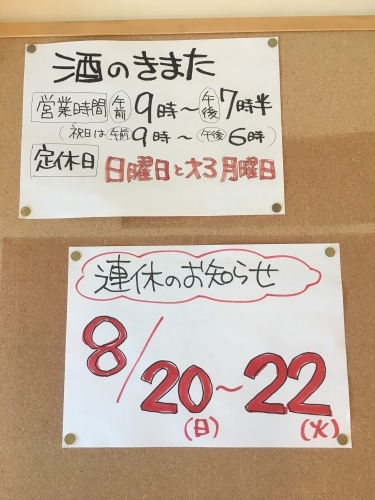 酒のきまた
営業時間 午前 9時～午後7時半
(祝日は午前9時～午後6時)
定休日 日曜日と才3月曜日
連休のお知らせ
8/20～22
(日) (火)